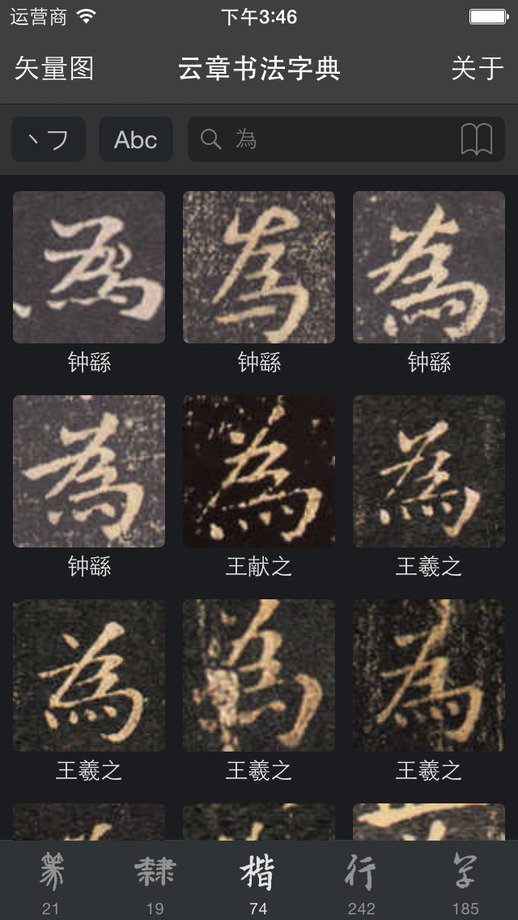 运营商 下午3:46
矢量图 云章书法字典 关于
丶フ Abc 為
為 為 為
钟繇 钟繇 钟繇
為 為 為
钟繇 王献之 王羲之
為 為 為
王羲之 王羲之 王羲之
篆 隸 楷 行 草
21 19 74 242 185